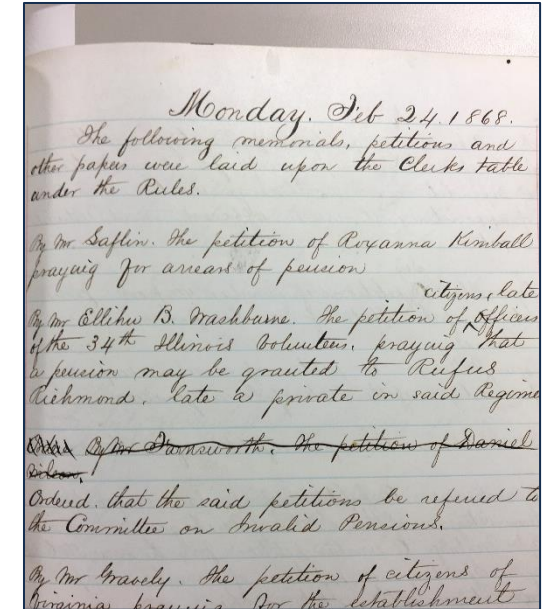 Monday. Feb 24. 1868.
The following memorials, petitions and
other papers were laid upon the Clerks table
under the Rules.
By Mr Laflin. The petition of Roxanna Kimball
praying for arrears of pension
citizens & late
By Mr Ellihu B. Washburne. The petition of ^ Officers
of the 34th Illinois Volunteers, praying that
a pension may be granted to Rufus
Richmond, late a private in said Regime
By Mr Farnsworth. The petition of Daniel
Ordered. that the said petitions be referred to
the Committee on Invalid Pensions.
By Mr Gravely. The petition of citizens of
Virginia praying for the establishment